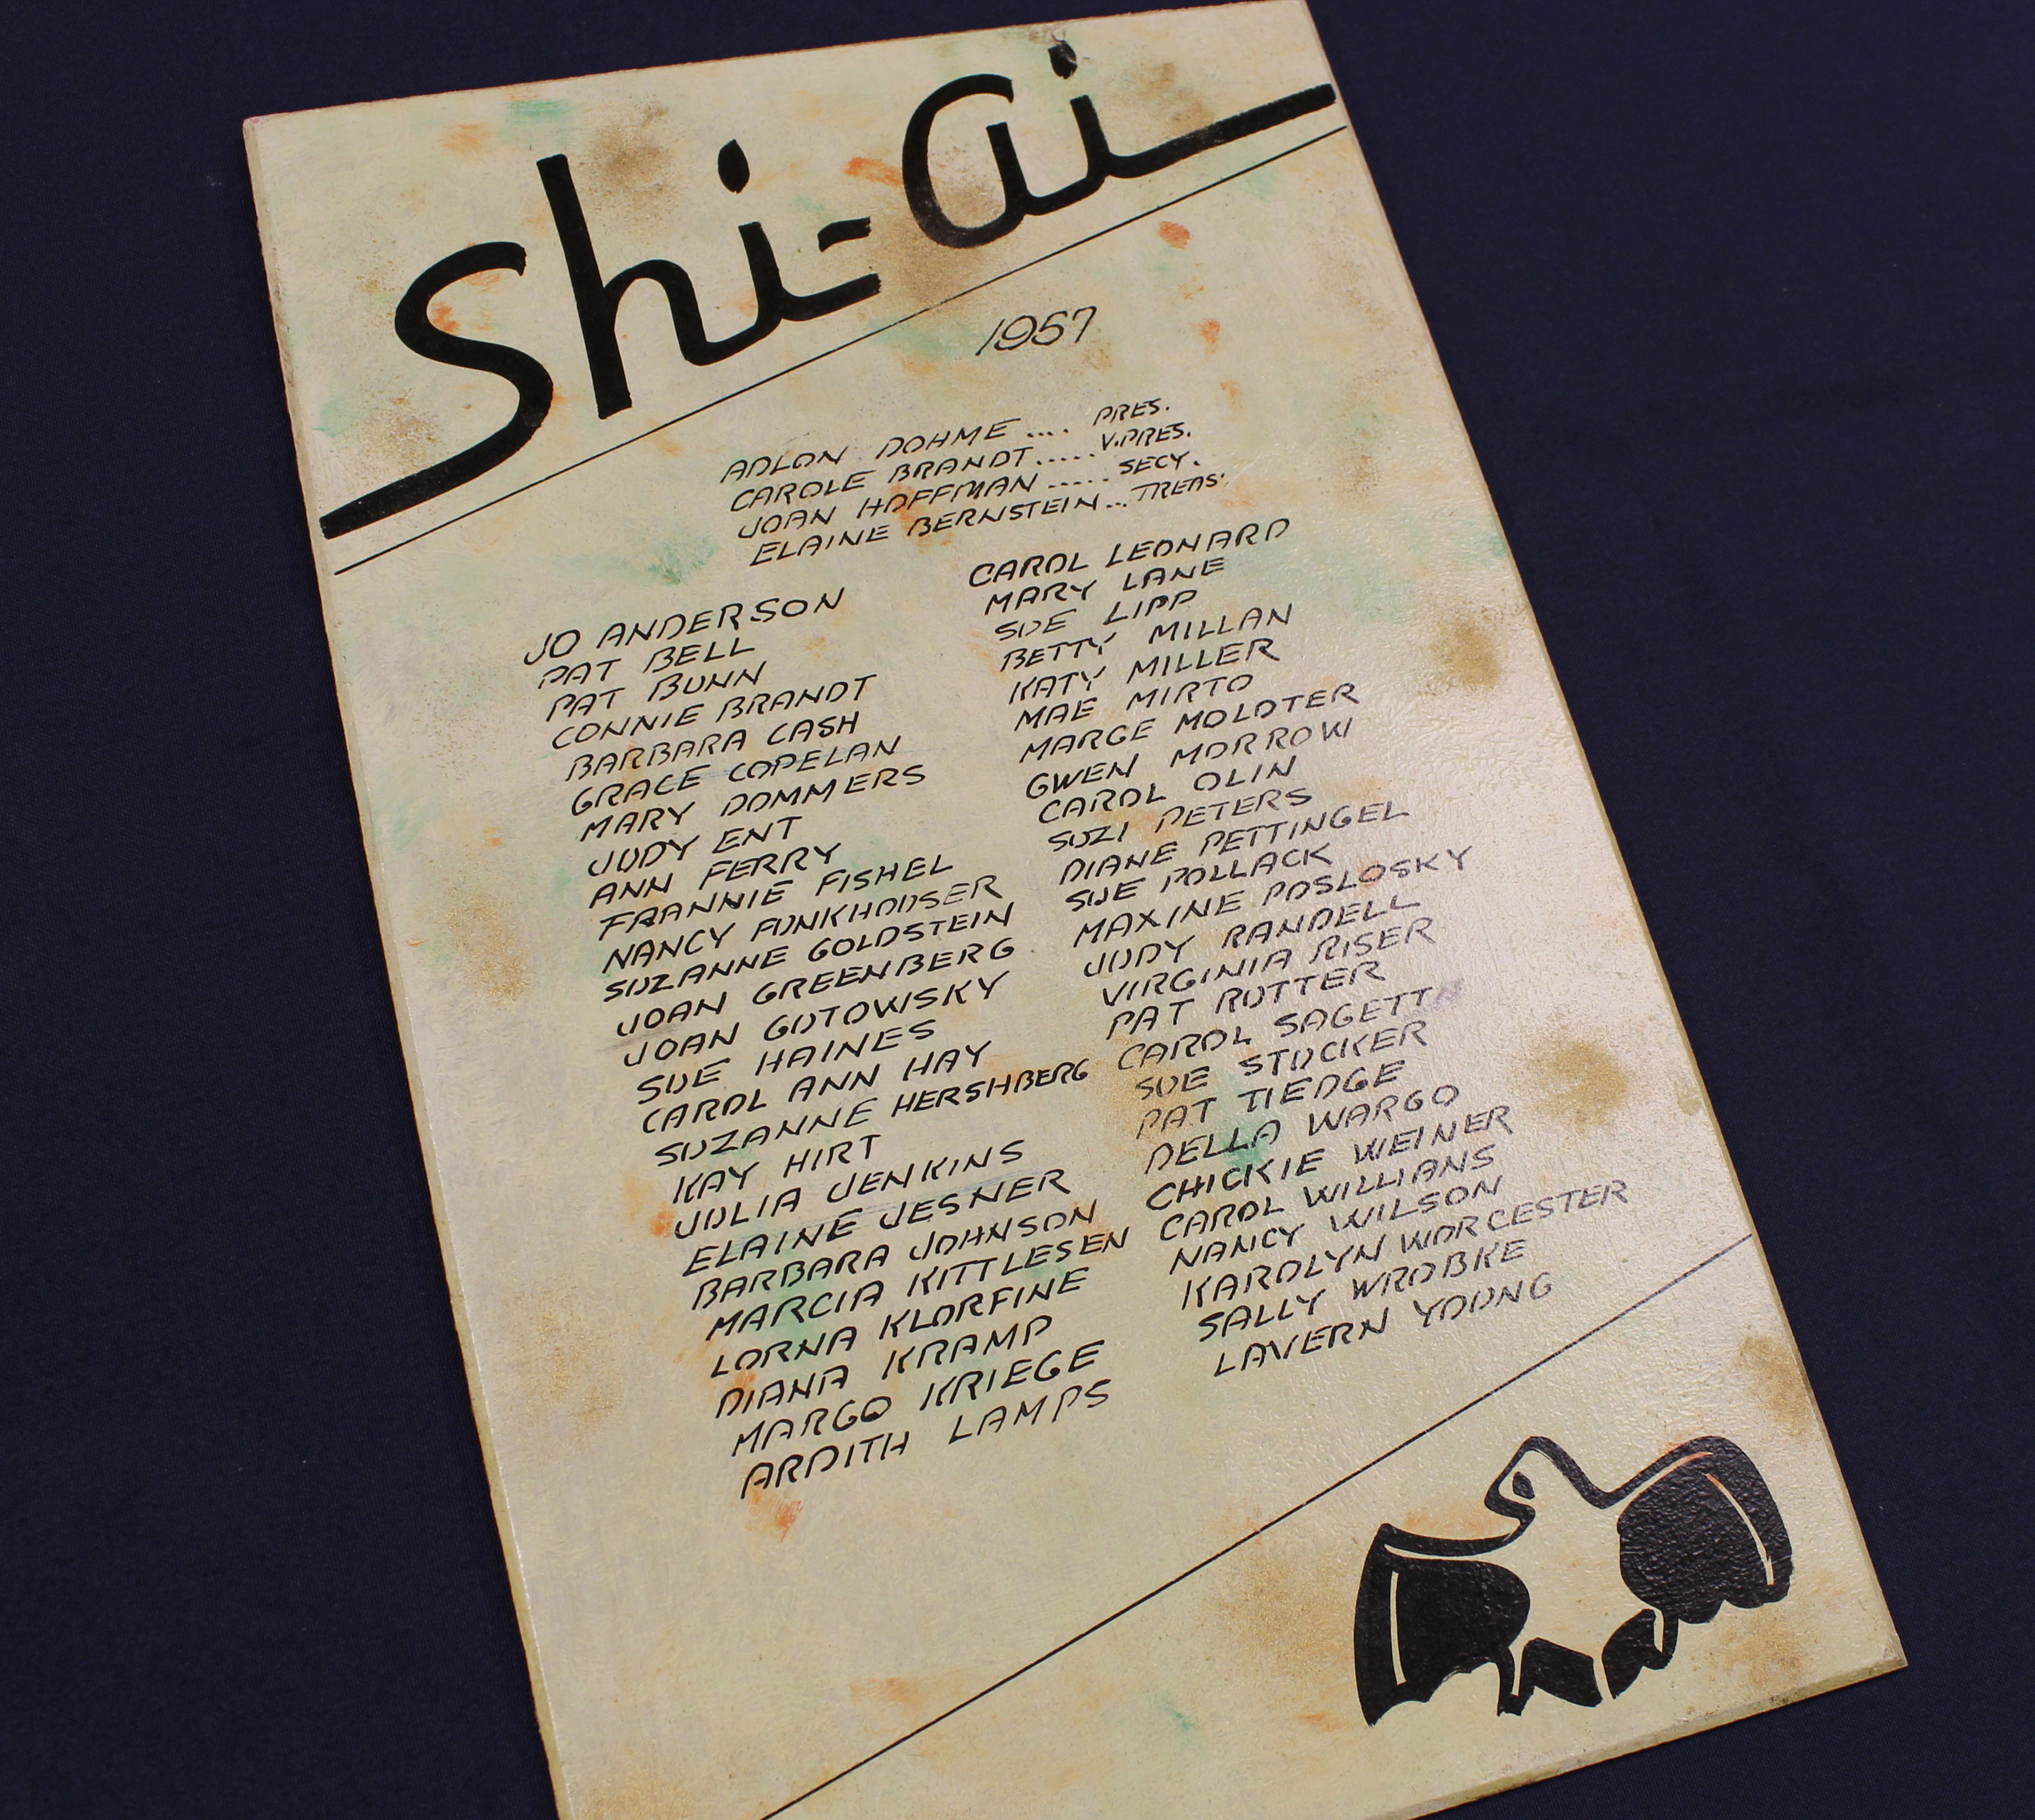 Shi-ai
1957
ADLON DOHME .... PRES.
CAROLE BRANDT ..... V.PRES.
JOAN HOFFMAN ..... SECY.
ELAINE BERNSTEIN ... TREAS.
JO ANDERSON
PAT BELL
PAT BUNN
CONNIE BRANDT
BARBARA CASH
GRACE COPELAN
MARY DOMMERS
JUDY ENT
ANN FERRY
FRANNIE FISHEL
NANCY FUNKHOUSER
SUZANNE GOLDSTEIN
JOAN GREENBERG
JOAN GOTOWSKY
SUE HAINES
CAROL ANN HAY
SUZANNE HERSHBERG
KAY HIRT
JULIA JENKINS
ELAINE JESNER
BARBARA JOHNSON
MARCIA KITTLESEN
LORNA KLORFINE
DIANA KRAMP
MARGO KRIEGE
ARDITH LAMPS
CAROL LEONARD
MARY LANE
SUE LIPP
BETTY MILLAN
KATY MILLER
MAE MIRTO
MARGE MOLDTER
GWEN MORROW
CAROL OLIN
SUZI PETERS
DIANE PETTINGEL
SUE POLLACK
MAXINE POSLOSKY
JUDY RANDELL
VIRGINIA RISER
PAT RUTTER
CAROL
SUE STOCKER
PAT TIEDGE
DELLA WARGO
CHICKIE WEINER
CAROL WILLIANS
NANCY WILSON
KAROLYN WORCESTER
SALLY WROBKE
LAVERN YOUNG